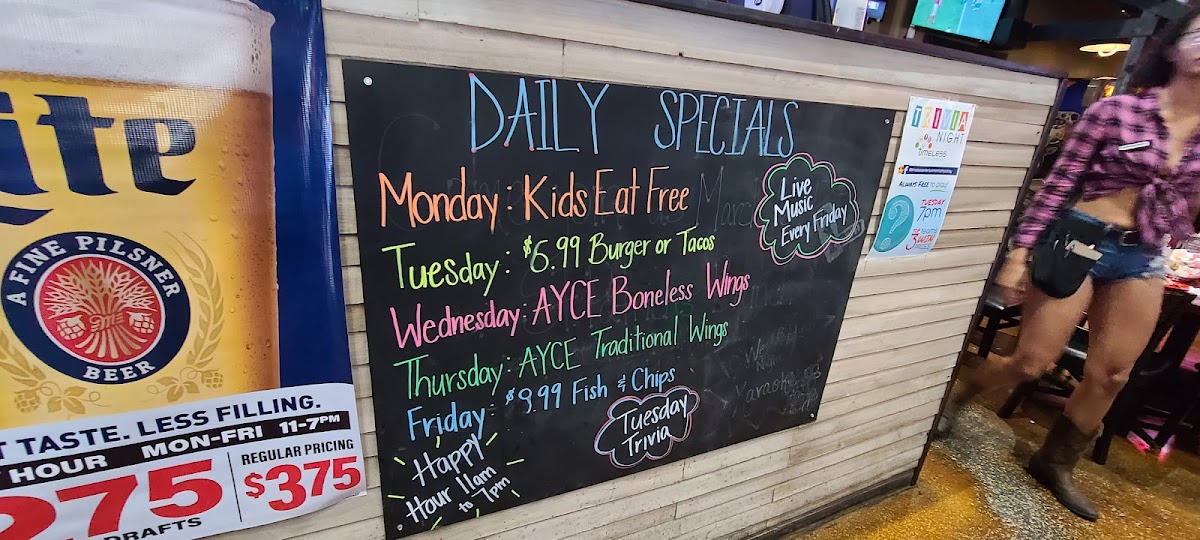 ite
A FINE PILSNER
BEER
T TASTE. LESS FILLING.
HOUR MON-FRI 11-7PM
275
DRAFTS
REGULAR PRICING
$375
DAILY SPECIALS
Monday: Kids Eat Free
Tuesday: $6.99 Burger or Tacos
Wednesday: AYCE Boneless Wings
Thursday: AYCE Traditional Wings
Friday: $9.99 Fish & Chips
Happy
Hour 11am
to 7pm
Tuesday
Trivia
Live
Music
Every Friday
TRIVIA
NIGHT
timeless
ALWAYS FREE to play!
TUESDAY
7pm
?